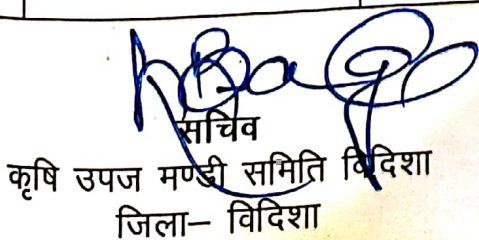 सचिव
कृषि उपज मण्डी समिति विदिशा
जिला– विदिशा